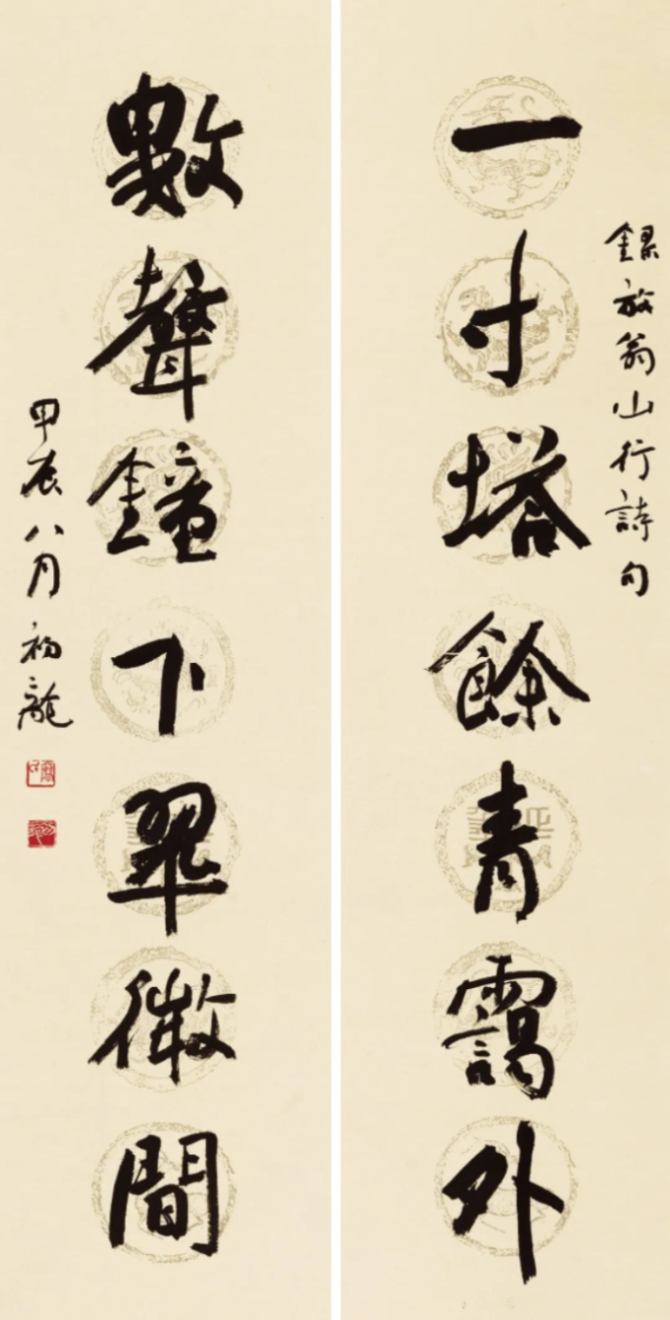 錄放翁山行詩句
一寸塔餘青靄外
數聲鐘下翠微間
甲辰八月初龍